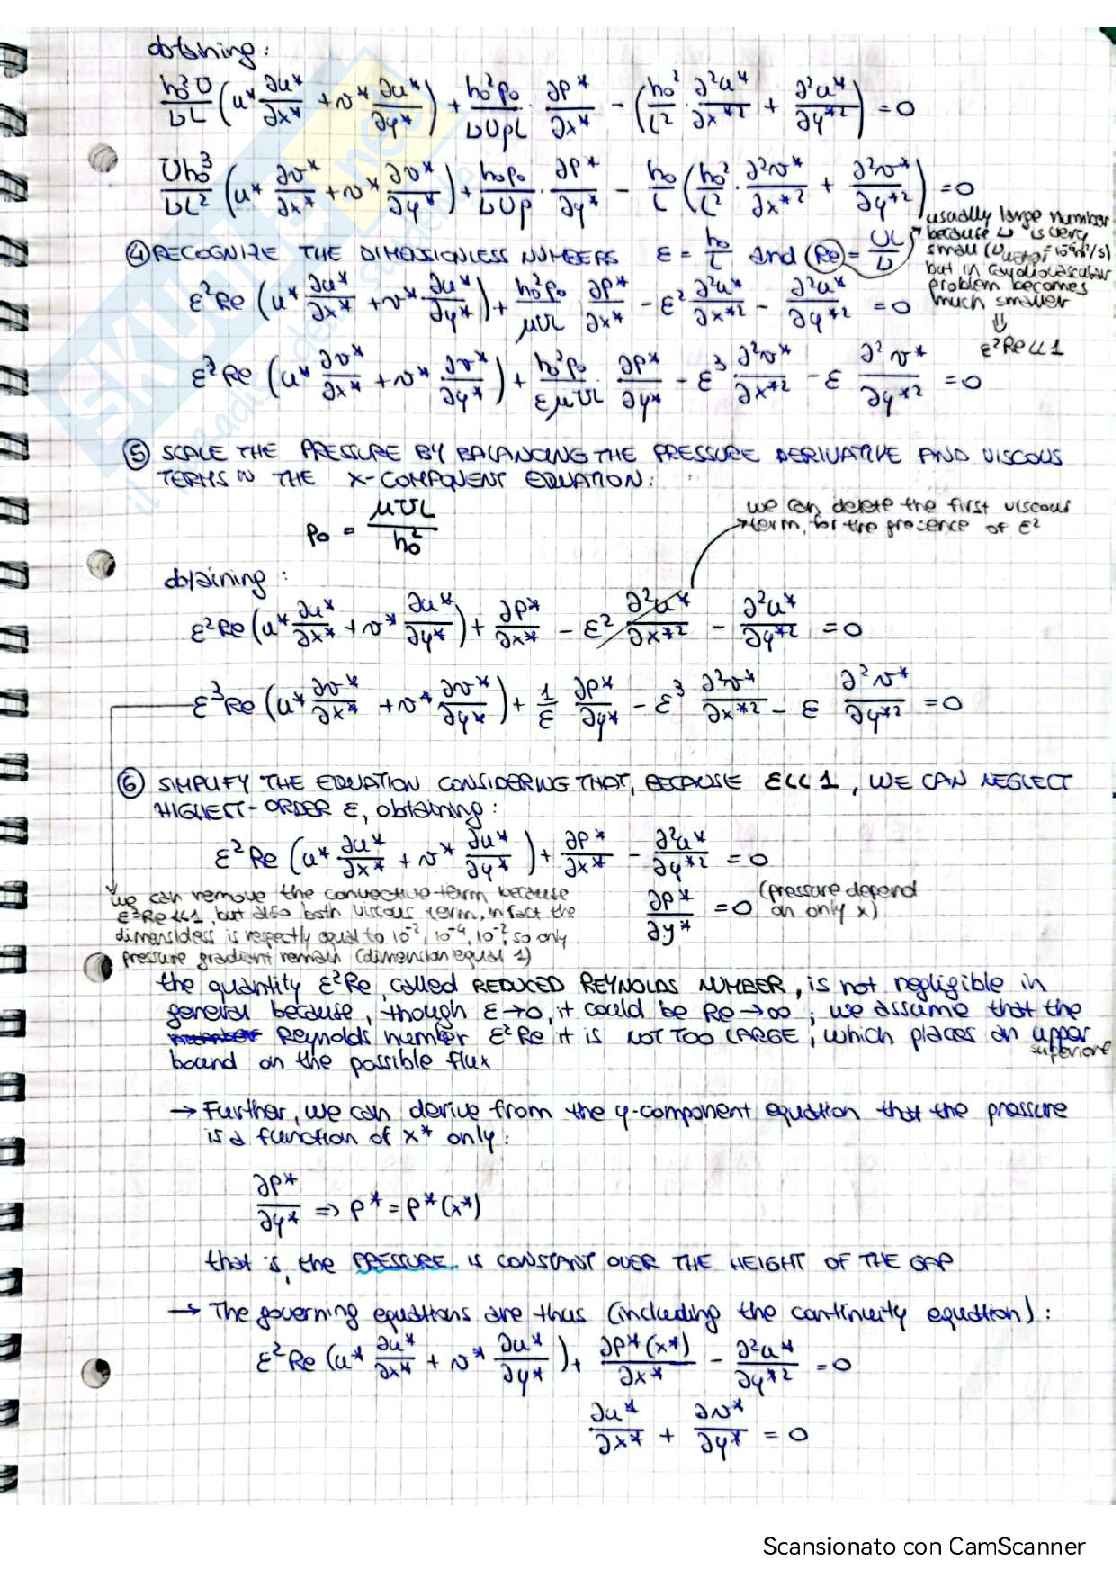 obtaining:
h₀²U/νL (u* ∂u*/∂x* + v* ∂u*/∂y*) + h₀²p₀/νUρL · ∂p*/∂x* − (h₀²/L² · ∂²u*/∂x*² + ∂²u*/∂y*²) = 0
Uh₀³/νL² (u* ∂v*/∂x* + v* ∂v*/∂y*) + h₀p₀/νUρ · ∂p*/∂y* − h₀/L (h₀²/L² · ∂²v*/∂x*² + ∂²v*/∂y*²) = 0
usually large number
because ν is very
small (ν
but in cardiovascular
problem becomes
much smaller
⇓
ε²Re≪1
④ RECOGNIZE THE DIMENSIONLESS NUMBERS ε = h₀/L and Re = UL/ν
ε²Re (u* ∂u*/∂x* + v* ∂u*/∂y*) + h₀²p₀/μUL ∂p*/∂x* − ε² ∂²u*/∂x*² − ∂²u*/∂y*² = 0
ε²Re (u* ∂v*/∂x* + v* ∂v*/∂y*) + h₀²p₀/εμUL · ∂p*/∂y* − ε³ ∂²v*/∂x*² − ε ∂²v*/∂y*² = 0
⑤ SCALE THE PRESSURE BY BALANCING THE PRESSURE DERIVATIVE AND VISCOUS
TERMS IN THE X-COMPONENT EQUATION:
p₀ = μUL/h₀²
we can delete the first viscous
term, for the precence of ε²
obtaining:
ε²Re (u* ∂u*/∂x* + v* ∂u*/∂y*) + ∂p*/∂x* − ε² ∂²u*/∂x*² − ∂²u*/∂y*² = 0
ε³Re (u* ∂v*/∂x* + v* ∂v*/∂y*) + 1/ε ∂p*/∂y* − ε³ ∂²v*/∂x*² − ε ∂²v*/∂y*² = 0
⑥ SIMPLIFY THE EQUATION CONSIDERING THAT, BECAUSE ε≪1, WE CAN NEGLECT
HIGHEST-ORDER ε, obtaining:
ε²Re (u* ∂u*/∂x* + v* ∂u*/∂y*) + ∂p*/∂x* − ∂²u*/∂y*² = 0
∂p*/∂y* = 0 (pressure depend
on only x)
we can remove the convective term because
ε²Re≪1, but also both viscous term, in fact the
dimensioless is respectly equal to 10⁻², 10⁻⁴, 10⁻², so only
pressure gradient remain (dimension equal 1)
the quantity ε²Re, called REDUCED REYNOLDS NUMBER, is not negligible in
general because, though ε→0, it could be Re→∞; we assume that the
Reynolds number ε²Re it is NOT TOO LARGE, which places an upper
superiore
bound on the possible flux
→ Further, we can derive from the y-component equation that the pressure
is a function of x* only:
∂p*/∂y* ⇒ p* = p*(x*)
that is, the PRESSURE IS CONSTANT OVER THE HEIGHT OF THE GAP
→ The governing equations are thus (including the continuity equation):
ε²Re (u* ∂u*/∂x* + v* ∂u*/∂y*) + ∂p*(x*)/∂x* − ∂²u*/∂y*² = 0
∂u*/∂x* + ∂v*/∂y* = 0
Scansionato con CamScanner